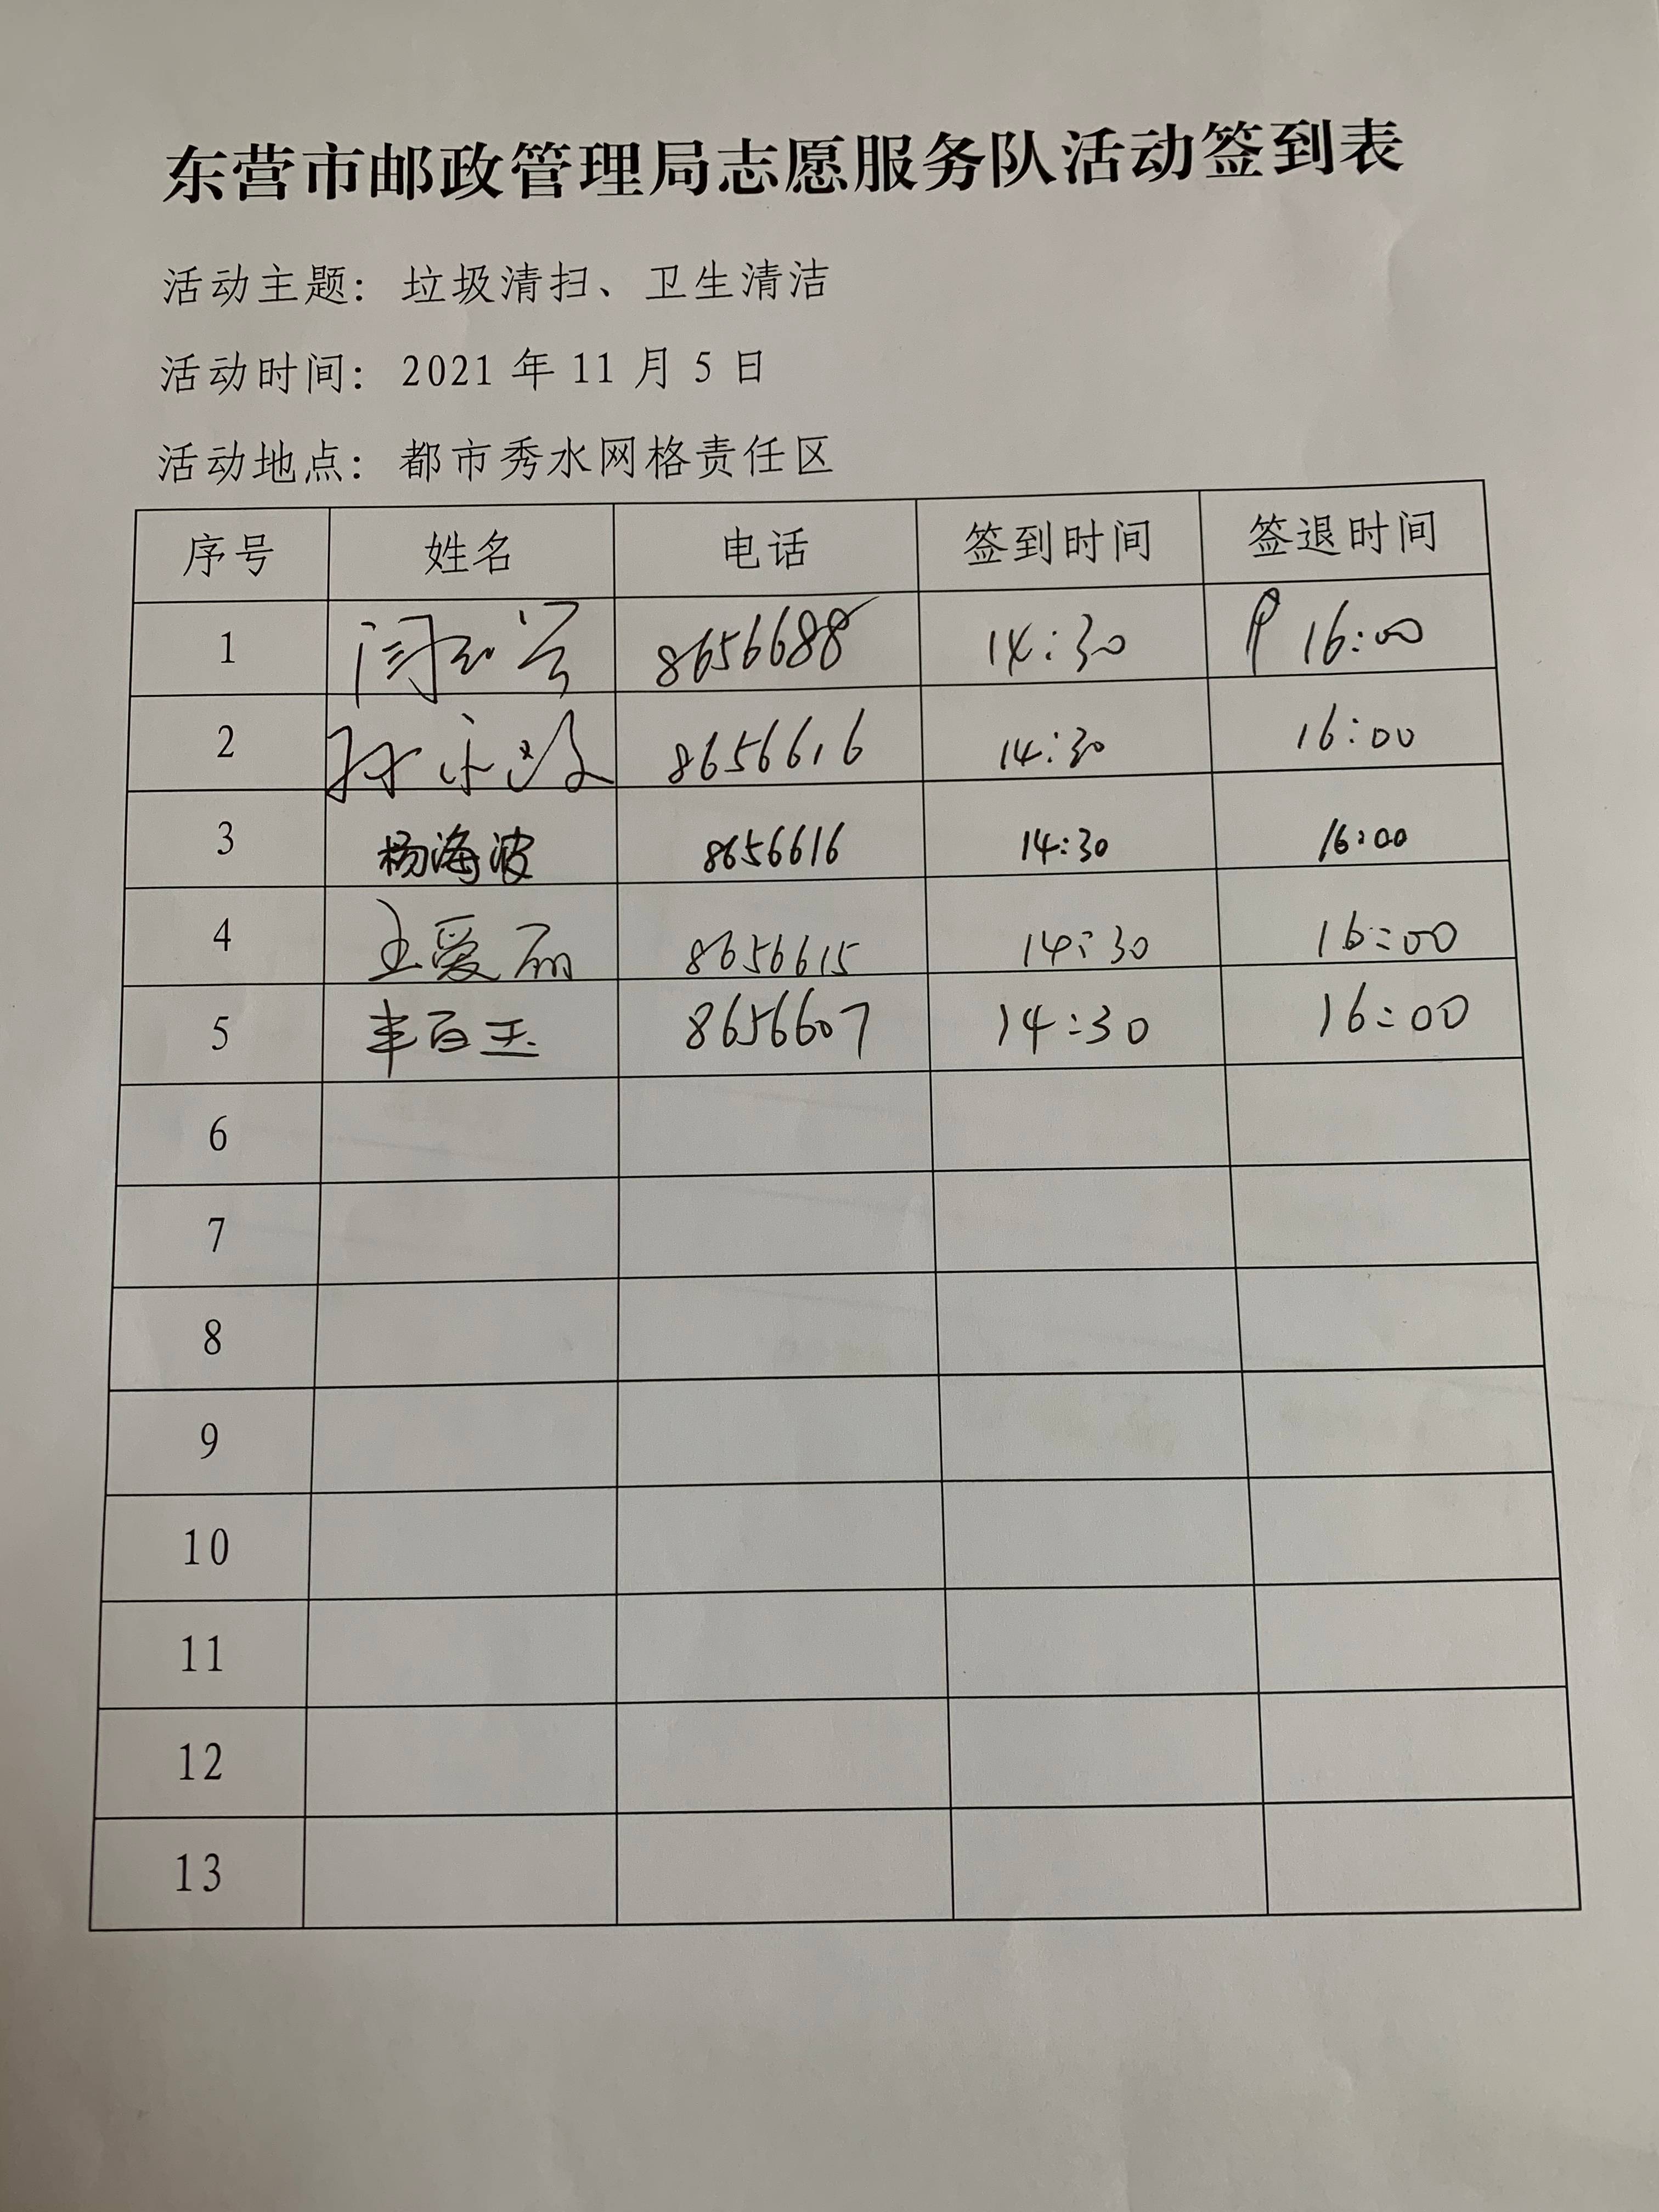 东营市邮政管理局志愿服务队活动签到表
活动主题：垃圾清扫、卫生清洁
活动时间：2021年11月5日
活动地点：都市秀水网格责任区
序号 姓名 电话 签到时间 签退时间
1 8656688 14:30 16:00
2 8656616 14:30 16:00
3 杨海波 8656616 14:30 16:00
4 王爱丽 8656615 14:30 16:00
5 丰百玉 8656607 14:30 16:00
6
7
8
9
10
11
12
13